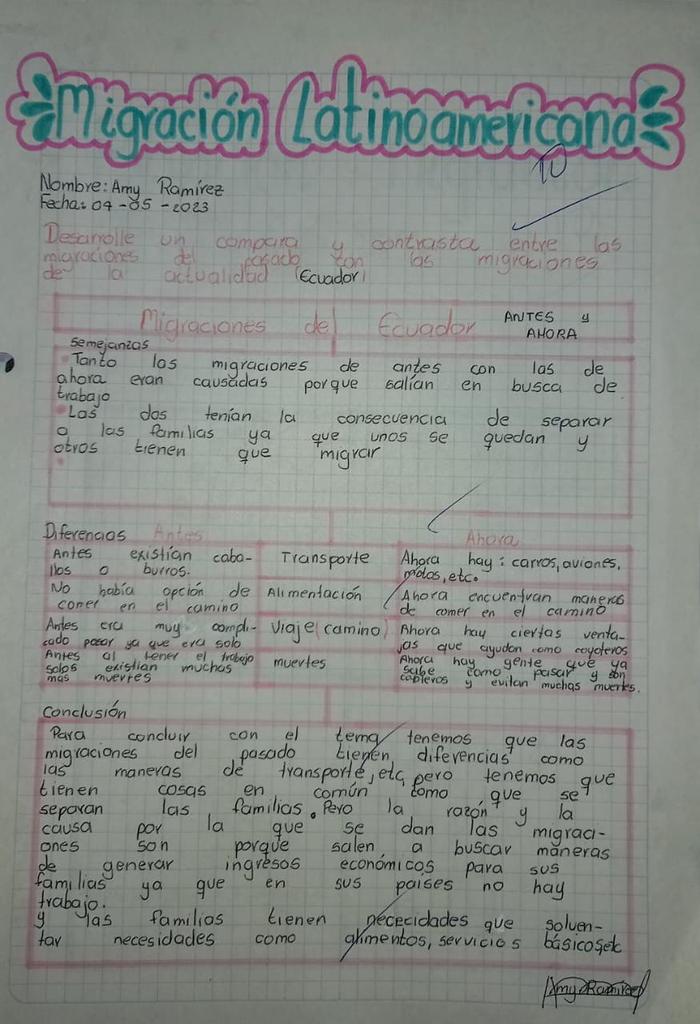 Migración Latinoamericana
10
Nombre: Amy Ramírez
Fecha: 04-05-2023
Desarrolle un compara y contrasta entre las
migraciones del pasado con las migraciones
de la actualidad (Ecuador)
Migraciones del Ecuador ANTES y
AHORA
Semejanzas
• Tanto las migraciones de antes con las de
ahora eran causadas porque salían en busca de
trabajo
• Las dos tenían la consecuencia de separar
a las familias ya que unos se quedan y
otros tienen que migrar
Diferencias Antes Ahora
Antes existían caba-
llos o burros.
Transporte
Ahora hay: carros, aviones,
motos, etc.
No había opción de
comer en el camino
Alimentación
Ahora encuentran maneras
de comer en el camino
Antes era muy compli-
cado pasar ya que era solo
Viaje (camino)
Ahora hay ciertas venta-
jas que ayudan como coyoteros
Antes al tener el trabajo
solos existian muchas
más muertes
muertes
Ahora hay gente que ya
sabe como pasar y son
y evitan muchas muertes.
Conclusión
Para concluir con el tema tenemos que las
migraciones del pasado tienen diferencias como
las maneras de transporte, etc, pero tenemos que
tienen cosas en común como que se
separan las familias. Pero la razón y la
causa por la que se dan las migraci-
ones son porque salen a buscar maneras
de generar ingresos económicos para sus
familias ya que en sus países no hay
trabajo.
y las familias tienen nececidades que solven-
tar necesidades como alimentos, servicios básicos, etc
Amy Ramírez